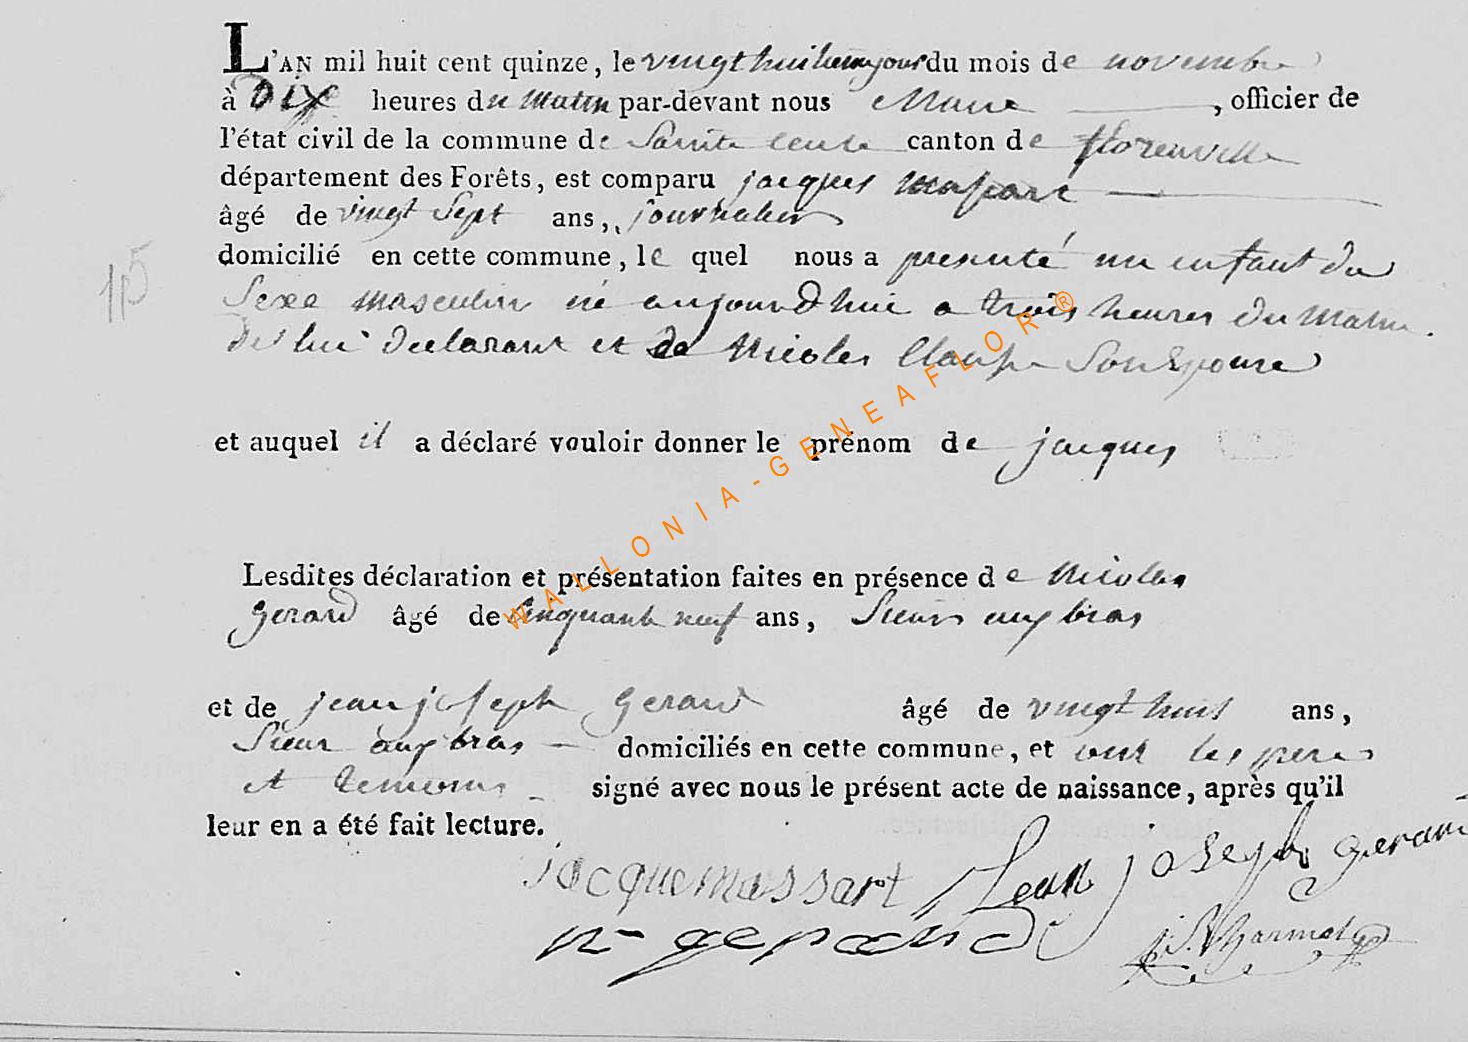 L'AN mil huit cent quinze, le vingt huitieme jour du mois de novembre
à Dix heures du Matin par-devant nous Maire, officier de
l'état civil de la commune de Sainte cecile canton de florenville
département des Forêts, est comparu jacques massart
âgé de vingt Sept ans, journalier
domicilié en cette commune, le quel nous a presenté un enfant du
Sexe masculin né aujourd'hui a trois heures du Matin
de lui declarant et de Nicolle Son Epouse
et auquel il a déclaré vouloir donner le prénom de jacques
Lesdites déclaration et présentation faites en présence de Nicolas
Gerard âgé de cinquante neuf ans, Sieur aux bras
et de jean joseph Gerard âgé de vingt huit ans,
Sieur aux bras domiciliés en cette commune, et ont les peres
et temoins signé avec nous le présent acte de naissance, après qu'il
leur en a été fait lecture.
jacque massart jean joseph gerard
n gerard
115
WALLONIA-GENEAFLOR®